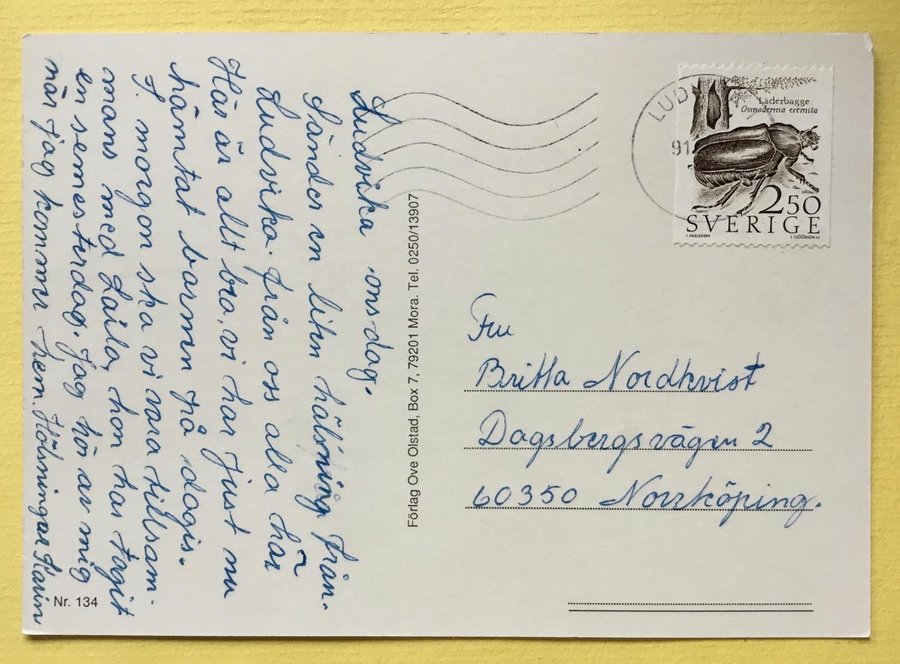 Ludvika ons.dag.
Sänder en liten hälsning från
Ludvika. från oss alla här
Här är allt bra, vi har just nu
hämtat barnen på dagis.
I morgon ska vi vara tillsam-
mans med Laila, hon har tagit
en semesterdag. Jag hör av mig
när jag kommer hem. Hälsningar Karin
Nr. 134
Förlag Ove Olstad, Box 7, 79201 Mora. Tel. 0250/13907
LUD
91
Läderbagge
Osmoderma eremita
2.50
SVERIGE
Fru
Britta Nordkvist
Dagsbergsvägen 2
60350 Norrköping.